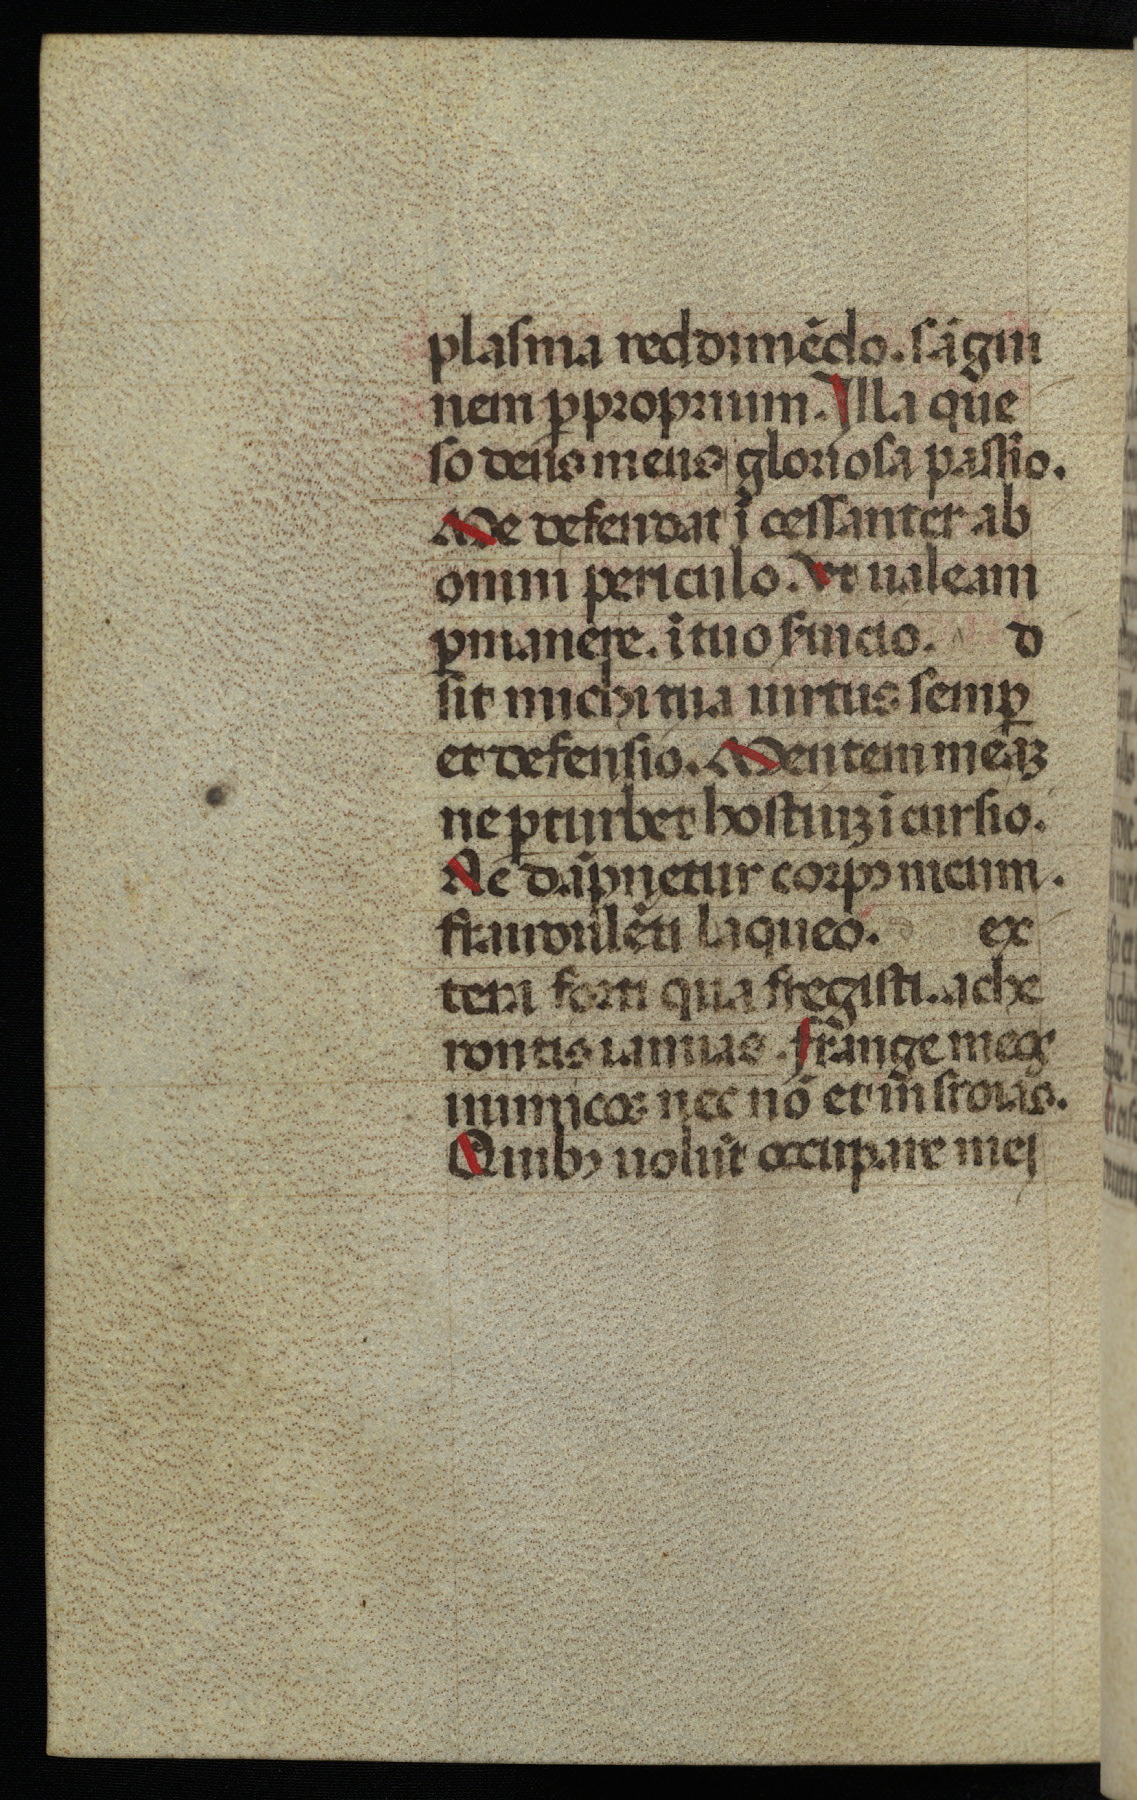 plasma reddimēdo. sāguī
nem ꝑ proprium. Illa que
so deus meus gloriosa passio.
Me defendat ī cessanter ab
omni periculo. Vt ualeam
ꝑmanere. ī tuo seruicio. d
sit michi tua uirtus semꝑ
et defensio. Mentem meaꝫ
ne ꝑturbet hostiuꝫ īcursio.
Ne dāpnetur corpꝰ meum.
fraudulēti laqueo. ex
tera forti qua fregisti. ache
rontis ianuas. frange meos
inimicos nec nō et
Quibꝰ uolūt occupare mei